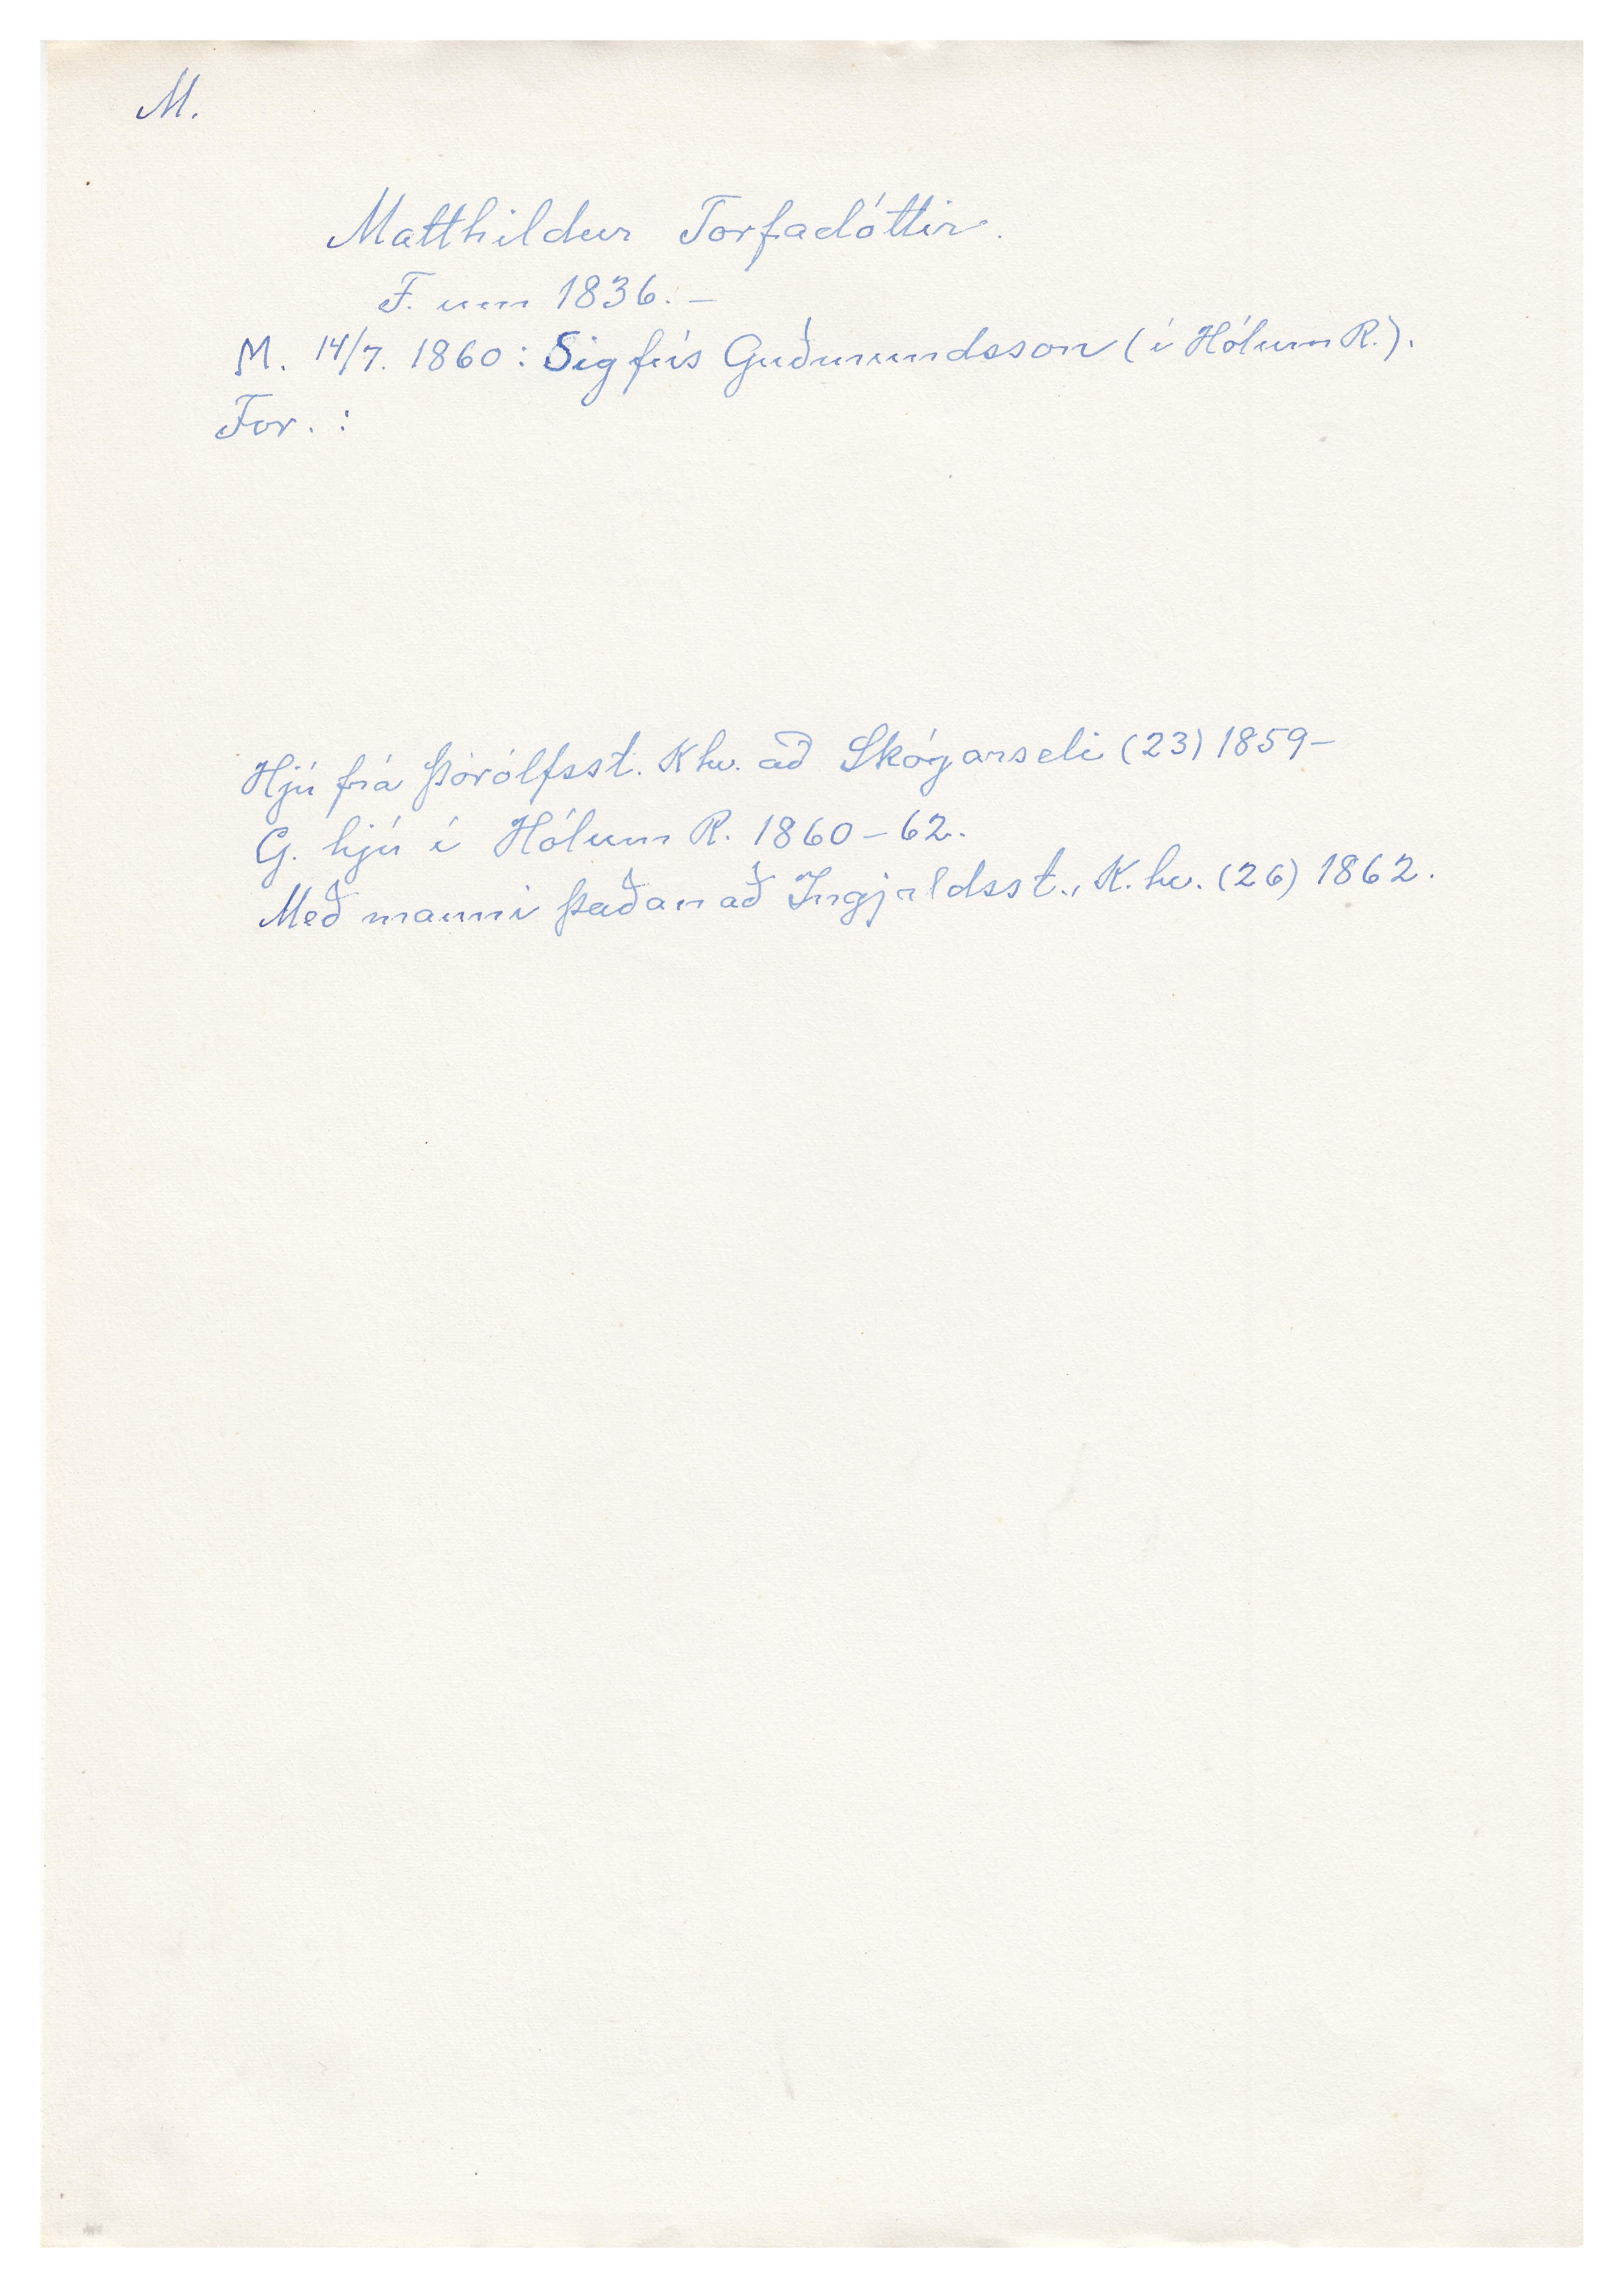 M.
Matthildur Torfadóttir.
F. um 1836. –
M. 14/7. 1860: Sigfús Guðmundsson (í Hólum R.).
For. :
Hjú frá Þórólfsst. Khv. að Skógarseli (23) 1859–
G. hjú í Hólum R. 1860–62.
Með manni þaðan að Ingjaldsst., K.hv. (26) 1862.